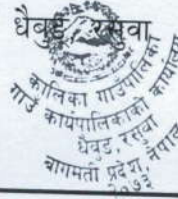 धैबुङ, रसुवा
कालिका गाउँपालिका
गाउँ कार्यपालिकाको कार्यालय
धैबुङ, रसुवा
बागमती प्रदेश, नेपाल
२०७३